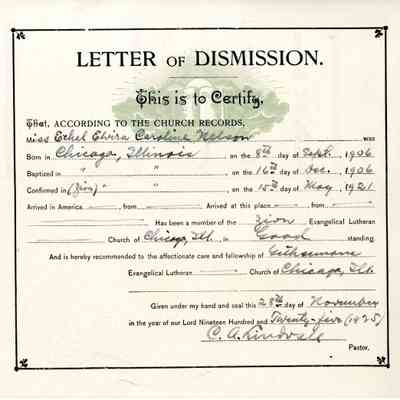 LETTER OF DISMISSION.
This is to Certify,
That, ACCORDING TO THE CHURCH RECORDS,
Miss Ethel Elvira Caroline Nelson was
Born in Chicago, Illinois, on the 8th day of Sept. 1906
Baptized in " " , on the 16th day of Dec. 1906
Confirmed in (Zion) " " , on the 15th day of May, 1921
Arrived in America , from Arrived at this place , from
Has been a member of the Zion Evangelical Lutheran
Church of Chicago, Ill. in Good standing.
And is hereby recommended to the affectionate care and fellowship of Gethsemane
Evangelical Lutheran Church of Chicago, Ill.
Given under my hand and seal this 28th day of November
in the year of our Lord Nineteen Hundred and Twenty-five (1925)
C. A. Lindvall
Pastor.